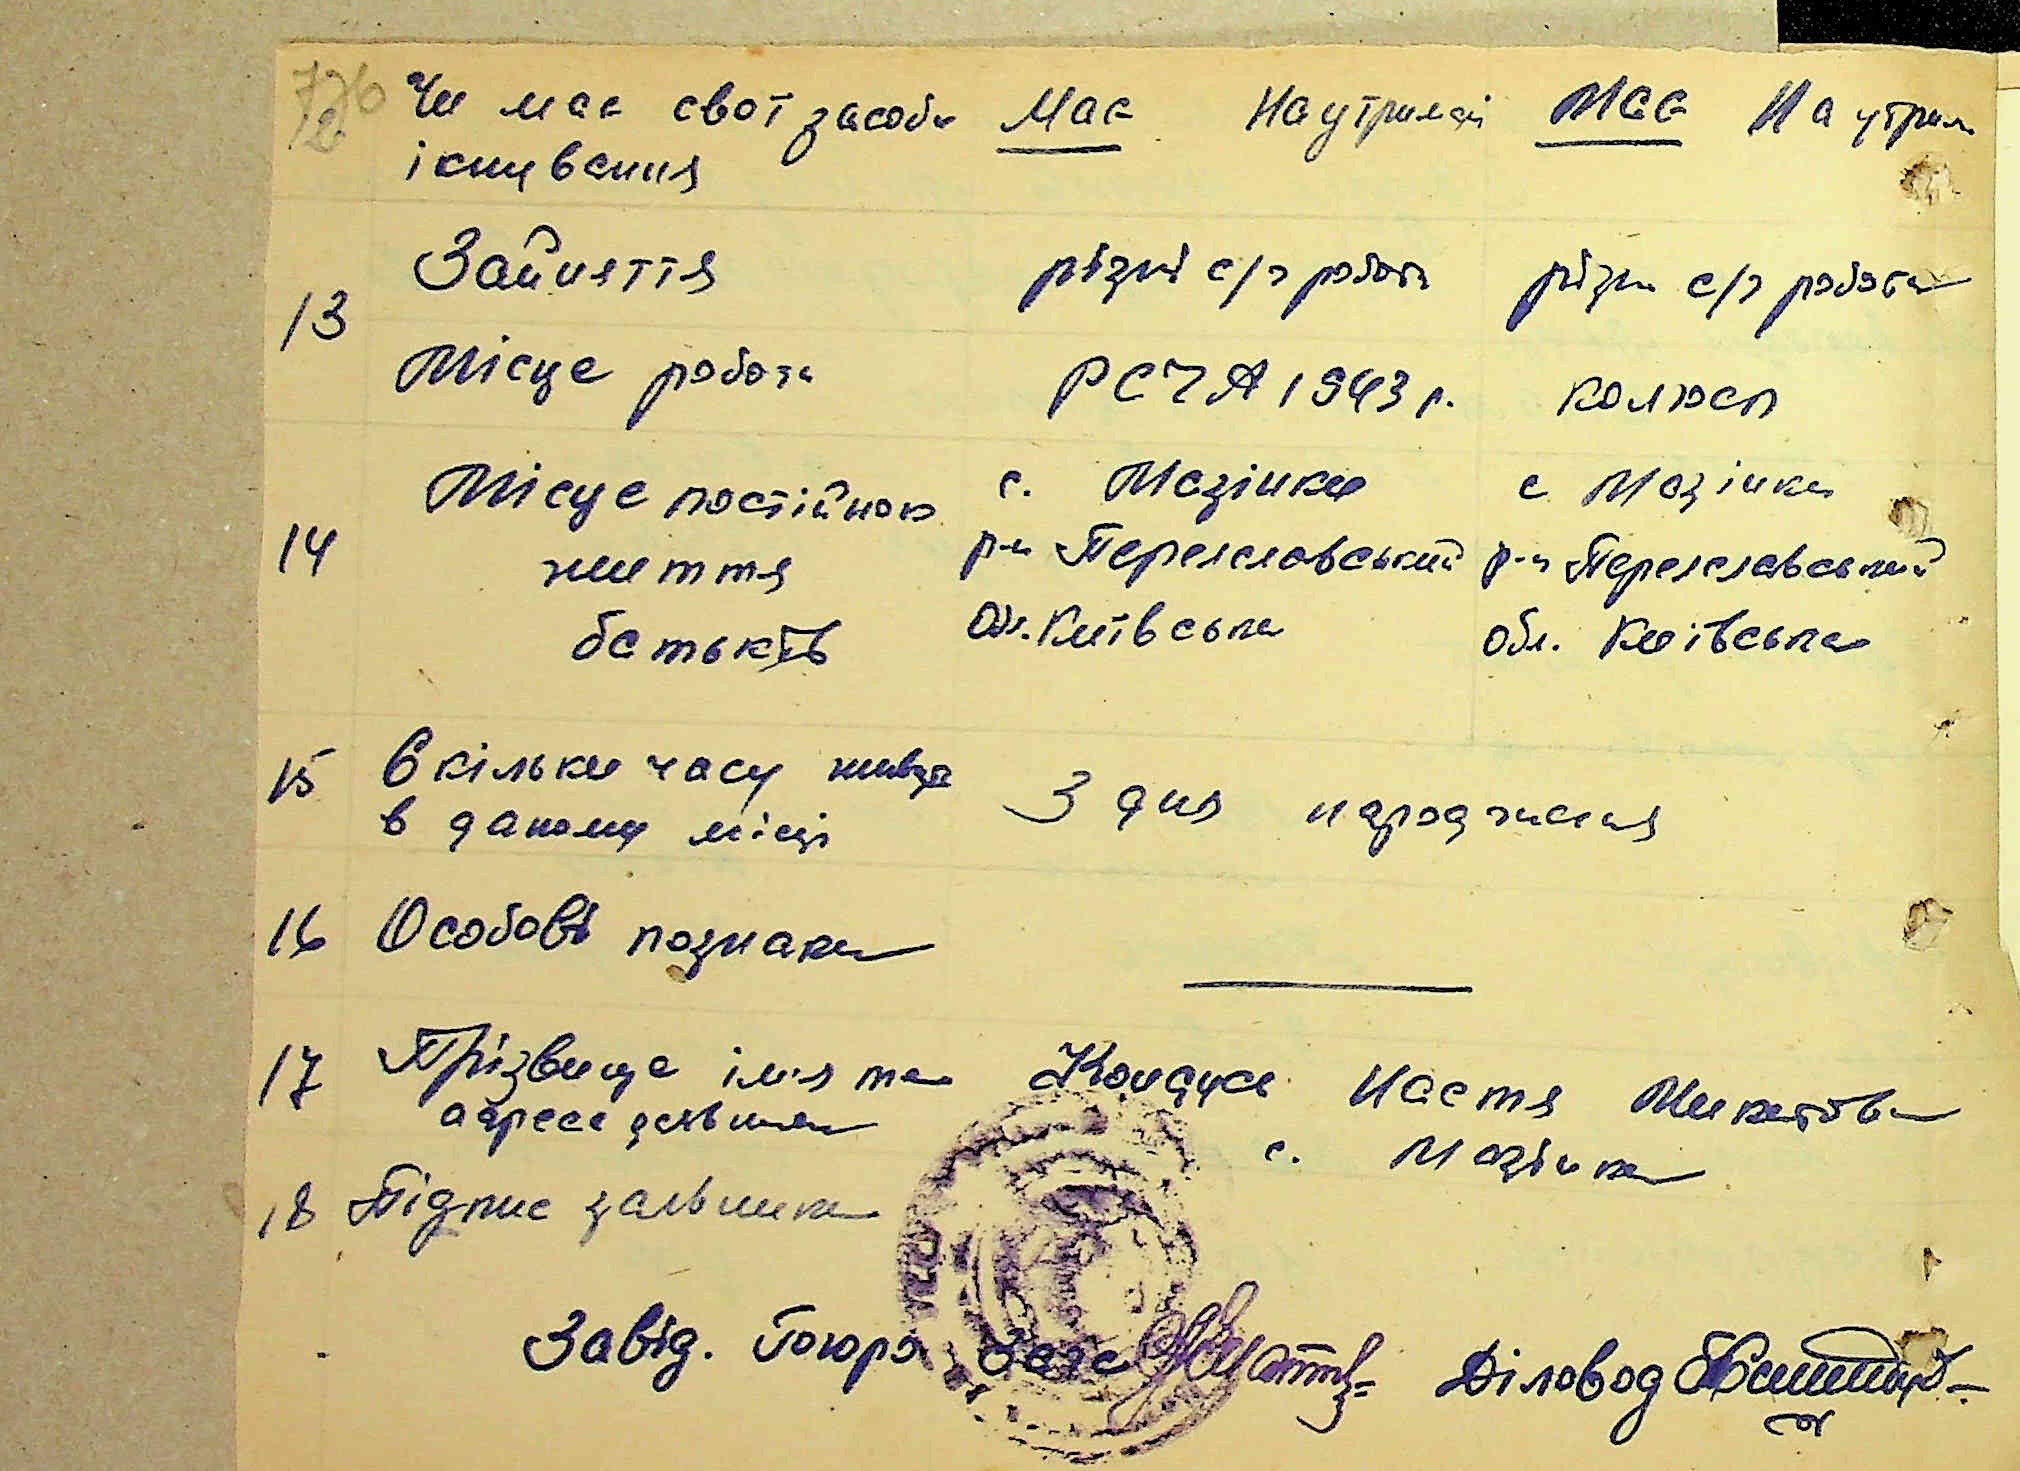 Чи має свої засоби Має На утриманні Має На утрим
існування
Зайняття різні с/г роботи різні с/г роботи
13
Місце роботи РСЧА 1943 р. колгосп
Місце постійного с. Мазінки с Мазінки
14 життя р-н Переяславський р-н Переяславський
батьків Обл. Київська обл. Київська
15 Скільки часу живуть З дня народження
в даному місці
16 Особові познаки
17 Прізвище ім'я та Кондусь Настя Микитовна
адреса заявника с. Мазінки
18 Підпис заявника
Завід. бюро Загс Діловод